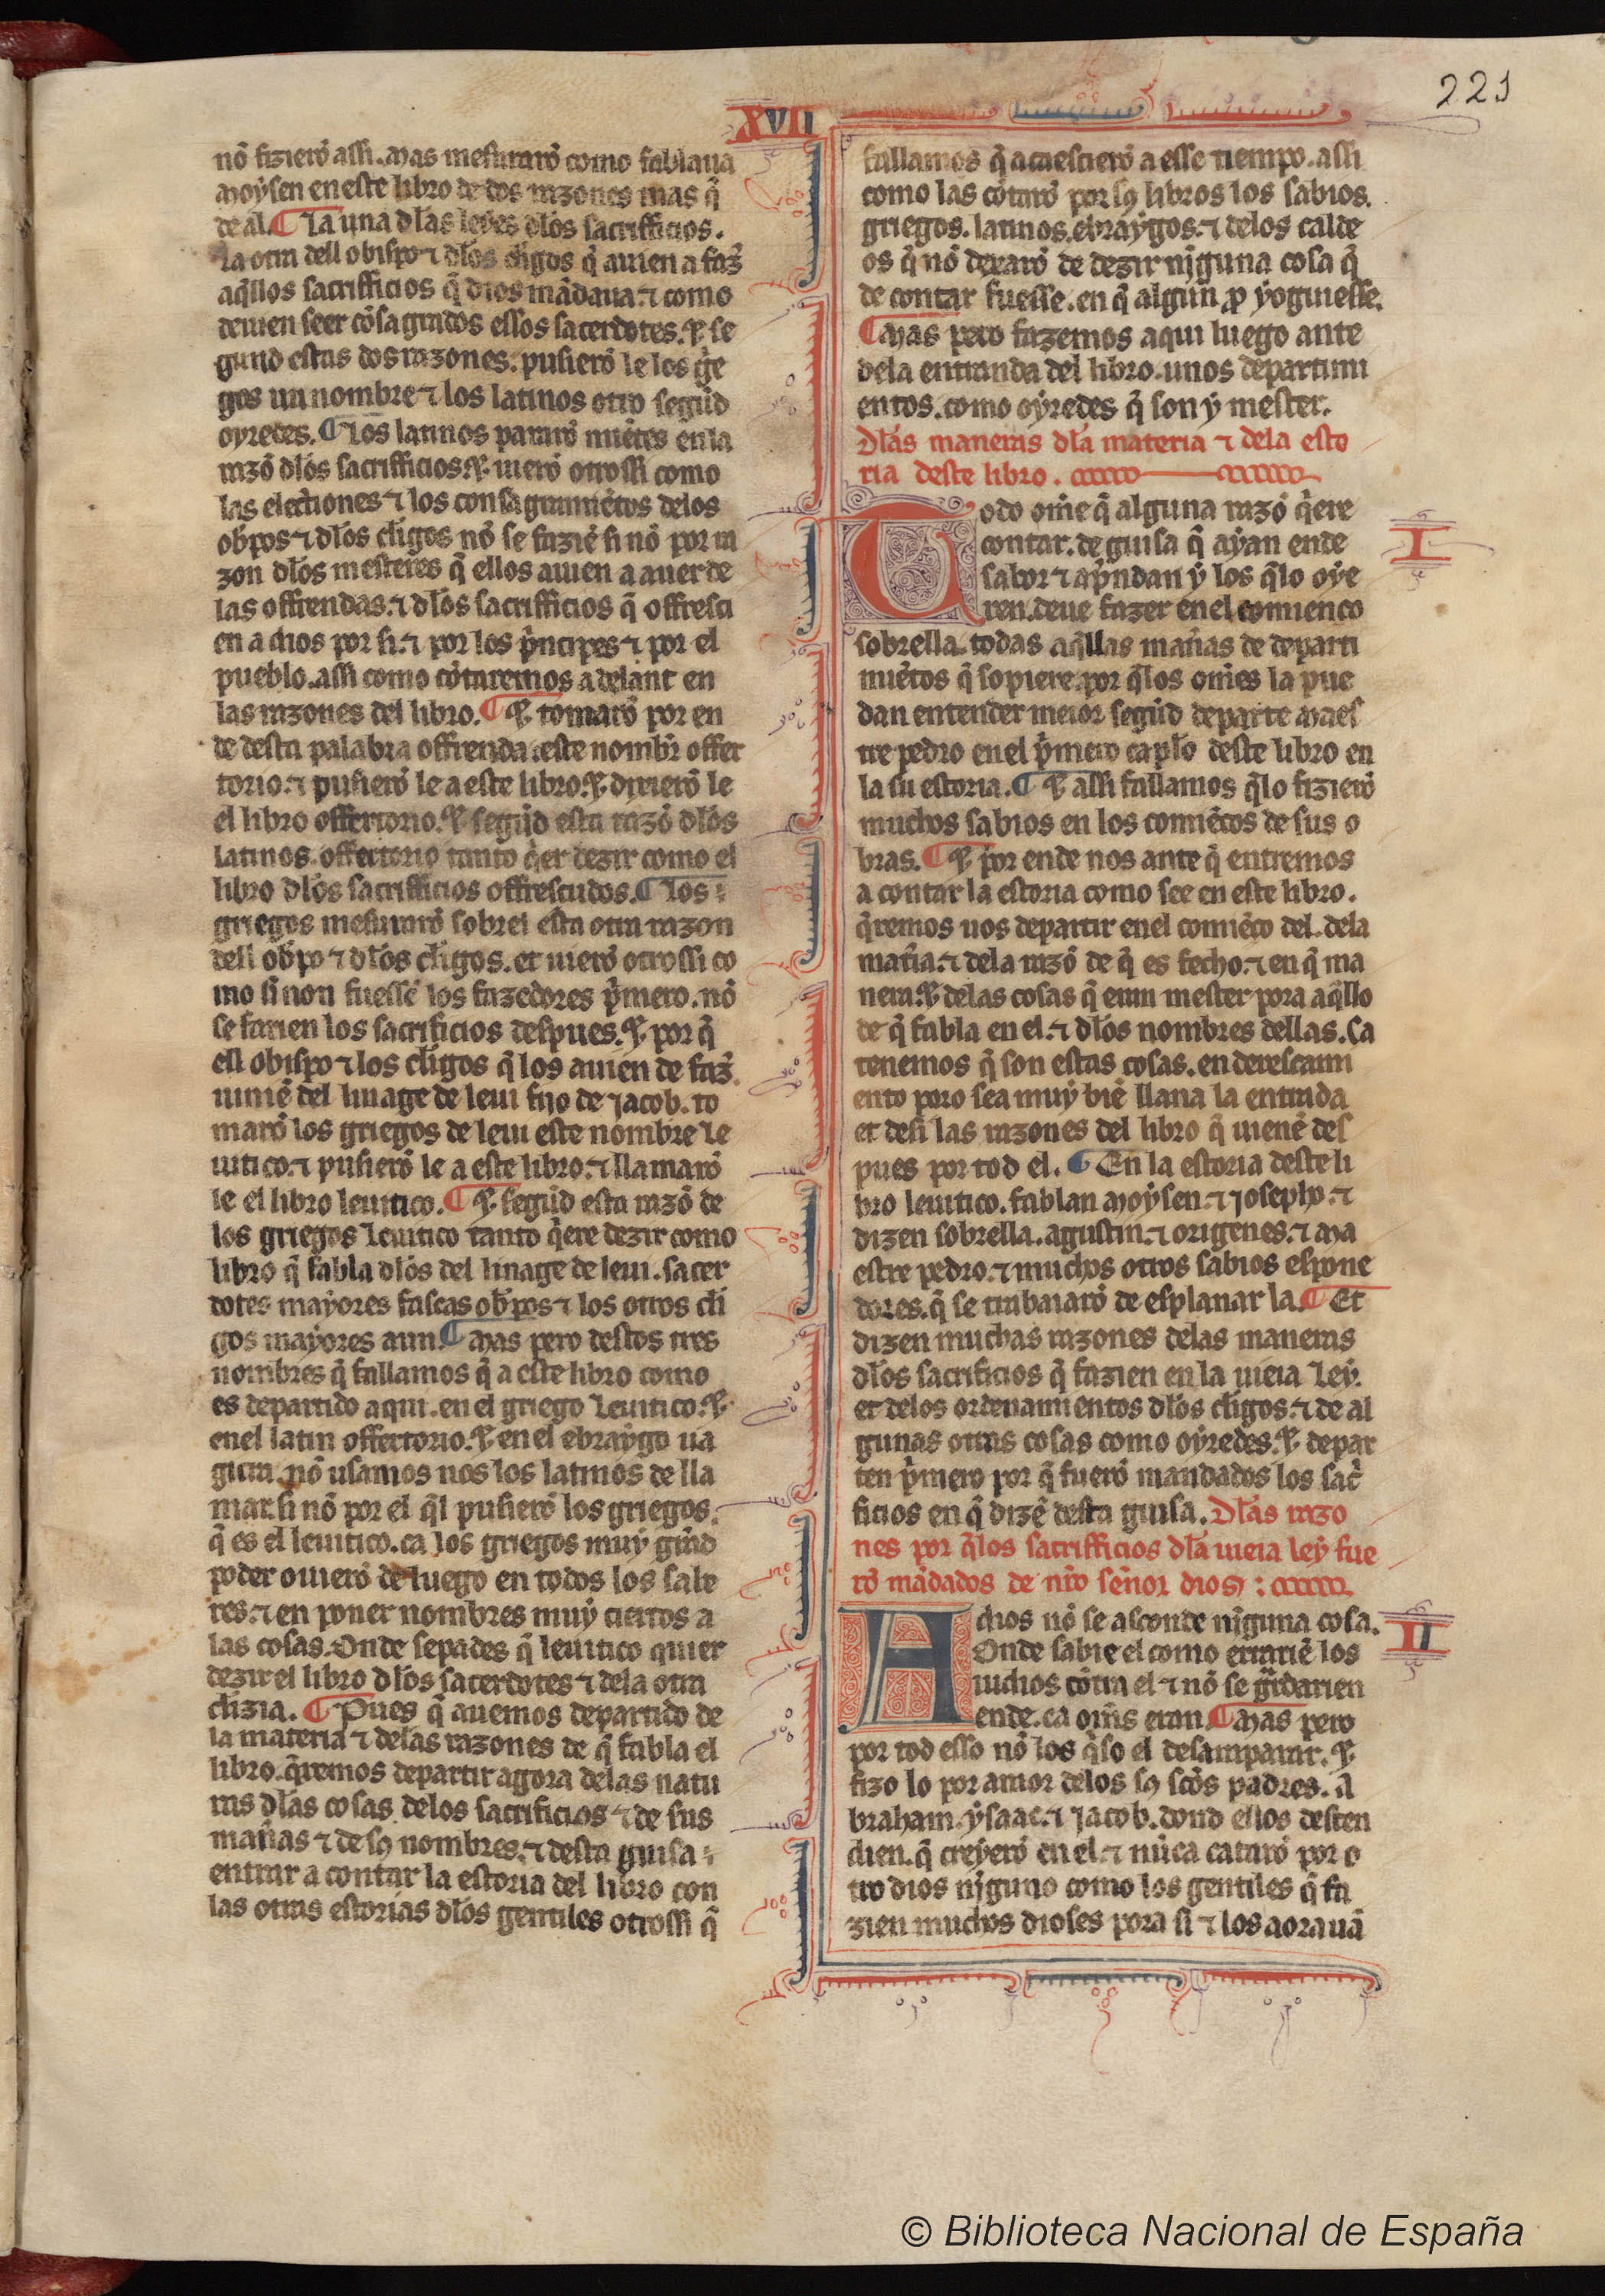 221
XVII
nõ fizierõ assi. mas mesurarõ como fablaua
moysen en este libro de dos razones mas q̃
de al. ¶ La una dl̃as leyes dl̃os sacrifficios.
la otra dell obispo ⁊ dl̃os cl̃igos q̃ auien a faz̃
aq̃llos sacrifficios q̃ dios mãdaua. ⁊ como
deuien seer cõsagrados essos sacerdotes. ⁊ se
gund estas dos razones. pusierõ le los g̃e
gos un nombre ⁊ los latinos otro segũd
oyredes. ¶ Los latinos pararõ miẽtes en la
razõ dl̃os sacrifficios. ⁊ uierõ otrossi como
las electiones ⁊ los consagramiẽtos delos
ob̃pos ⁊ dl̃os cl̃igos nõ se faziẽ si nõ por ra
zon dl̃os mesteres q̃ ellos auien a auer de
las offrendas. ⁊ dl̃os sacrifficios q̃ offresci
en a dios por si. ⁊ por los p̃ncipes ⁊ por el
pueblo. assi como cõtaremos adelant en
las razones del libro. ¶ ⁊ tomarõ por en
de desta palabra offrenda. este nombr̃ offer
torio. ⁊ pusierõ le a este libro. ⁊ dixierõ le
el libro offertorio. ⁊ segũd esta razõ dl̃os
latinos. offertorio tanto q̃er dezir como el
libro dl̃os sacrifficios offrescudos. ¶ Los
griegos mesurarõ sobrel esta otra razon
dell ob̃po ⁊ dl̃os cl̃igos. et uierõ otrossi co
mo si non fuessẽ los fazedores p̃mero. nõ
se farien los sacrificios despues. ⁊ por q̃
ell obispo ⁊ los cl̃igos q̃ los auien de faz̃.
uiniẽ del linage de leui fijo de jacob. to
marõ los griegos de leui este nombre le
uitico. ⁊ pusierõ le a este libro. ⁊ llamarõ
le el libro leuitico. ¶ ⁊ segũd esta razõ de
los griegos leuitico tanto q̃ere dezir como
libro q̃ fabla dl̃os del linage de leui. sacer
dotes mayores fascas ob̃pos ⁊ los otros cl̃i
gos mayores aun. ¶ Mas pero destos tres
nombres q̃ fallamos q̃ a este libro como
es departido aqui. en el griego leuitico. ⁊
enel latin offertorio. ⁊ en el ebraygo ua
gicra. nõ usamos nos los latinos de lla
mar. si nõ por el q̃l pusierõ los griegos.
q̃ es el leuitico. ca los griegos muy grãd
poder ouierõ de luego en todos los sabe
res. ⁊ en poner nombres muy ciertos a
las cosas. Onde sepades q̃ leuitico quier
dezir el libro dl̃os sacerdotes ⁊ dela otra
clizia. ¶ Pues q̃ auemos departido de
la materia ⁊ delas razones de q̃ fabla el
libro. q̃remos departir agora delas natu
ras dl̃as cosas delos sacrificios ⁊ de sus
mañas ⁊ de sꝯ nombres. ⁊ desta guisa
entrar a contar la estoria del libro con
las otras estorias dl̃os gentiles otrossi q̃
fallamos q̃ acaescierõ a esse tiempo. assi
como las cõtarõ por sꝯ libros los sabios.
griegos. latinos. ebraygos. ⁊ delos calde
os q̃ nõ dexarõ de dezir nĩguna cosa q̃
de contar fuesse. en q̃ algun p̃ yoguiesse.
¶ Mas pero fazemos aqui luego ante
dela entranda del libro. unos departimi
entos. como oyredes q̃ son y mester.
Dl̃as maneras dl̃a materia ⁊ dela esto
ria deste libro.
Todo om̃e q̃ alguna razõ q̃ere
contar. de guisa q̃ ayan ende
sabor ⁊ ap̃ndan y los q̃lo oye
ren. deue fazer en el comienco
sobrella. todas aq̃llas mañas de departi
miẽtos q̃ sopiere. por q̃los om̃es la pue
dan entender meior segũd departe maes
tre pedro en el p̃mero cap̃lo deste libro en
la su estoria. ¶ ⁊ assi fallamos q̃lo fizierõ
muchos sabios en los comiẽcos de sus o
bras. ¶ ⁊ por ende nos ante q̃ entremos
a contar la estoria como see en este libro.
q̃remos uos departir enel comiẽco del. dela
mat̃ia. ⁊ dela razõ de q̃ es fecho. ⁊ en q̃ ma
nera. ⁊ delas cosas q̃ eran mester pora aq̃llo
de q̃ fabla en el. ⁊ dl̃os nombres dellas. Ca
tenemos q̃ son estas cosas. enderescami
ento poro sea muy biẽ llana la entrada
et desi las razones del libro q̃ uienẽ des
pues por tod el. ¶ En la estoria deste li
bro leuitico. fablan moysen. ⁊ josepho. ⁊
dizen sobrella. agustin. ⁊ origenes. ⁊ ma
estre pedro. ⁊ muchos otros sabios espone
dores. q̃ se trabaiarõ de esplanar la. ¶ Et
dizen muchas razones delas maneras
dl̃os sacrificios q̃ fazien en la uieia ley.
et delos ordenamientos dl̃os cl̃igos. ⁊ de al
gunas otras cosas como oyredes. ⁊ depar
ten p̃mero por q̃ fuerõ mandados los sac̃
ficios en q̃ dizẽ desta guisa. Dl̃as razo
nes por q̃los sacrifficios dl̃a uieia ley fue
rõ mãdados de nr̃o señor dios:
I
A dios nõ se asconde nĩguna cosa.
Onde sabie el como errariẽ los
iudios cõtra el ⁊ nõ se gr̃darien
ende. ca om̃s eran. ¶ Mas pero
por tod esso nõ los q̃so el desamparar. ⁊
fizo lo por amor delos sꝯ scõs padres. A
braham. ysaac. ⁊ jacob. dond ellos desten
dien. q̃ creyerõ en el. ⁊ nũca catarõ por o
tro dios nĩguno como los gentiles q̃ fa
zien muchos dioses pora si ⁊ los aorauã
II
© Biblioteca Nacional de España